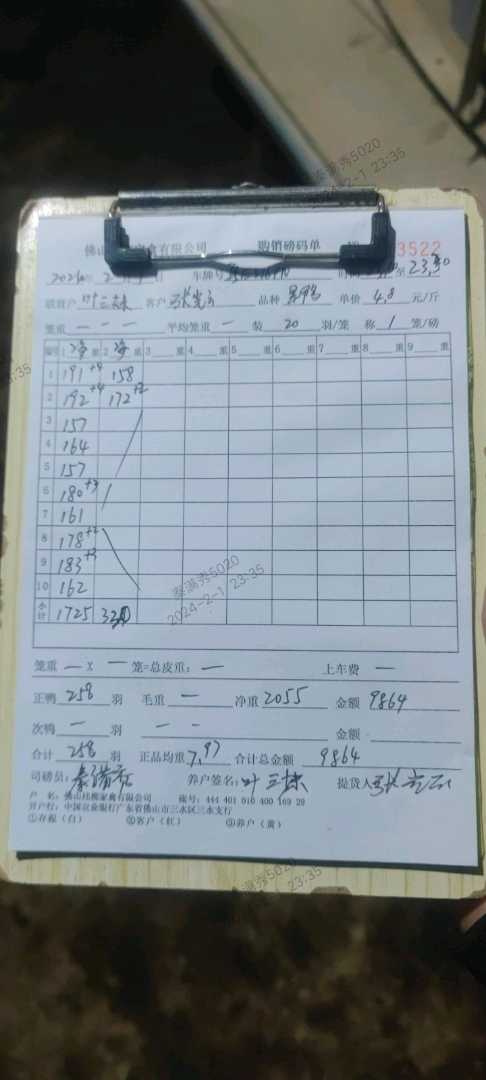 秦满秀5020
2024-2-1 23:35
佛山 家禽有限公司 购销磅码单 3522
2024年 2 车牌号 时间 至 23:30
联营户 叶三妹 客户 品种 单价 4.8 元/斤
笼重 — — — 平均笼重 — 装 20 羽/笼 称 1 笼/磅
编号 1 净 重 2 净 重 3 重 4 重 5 重 6 重 7 重 8 重 9 重
1 191+4 158
2 192+4 172+2
3 157
4 164
5 157
6 180+3
7 161
8 178+2
9 183+3
10 162
小计 1725 330
秦满秀5020
2024-2-1 23:35
笼重 — x — 笼=总皮重: — 上车费 —
正鸭 258 羽 毛重 — 净重 2055 金额 9864
次鸭 — 羽 — — 金额
合计 258 羽 正品均重 7.97 合计总金额 9864
司磅员: 秦满秀 养户签名: 叶三妹 提货人
户 名: 佛山 家禽有限公司 账号: 444 401 010 400 169 29
开户行: 中国农业银行广东省佛山市三水区三水支行
①存根(白) ②客户(红) ③养户(黄)
秦满秀5020
23:35